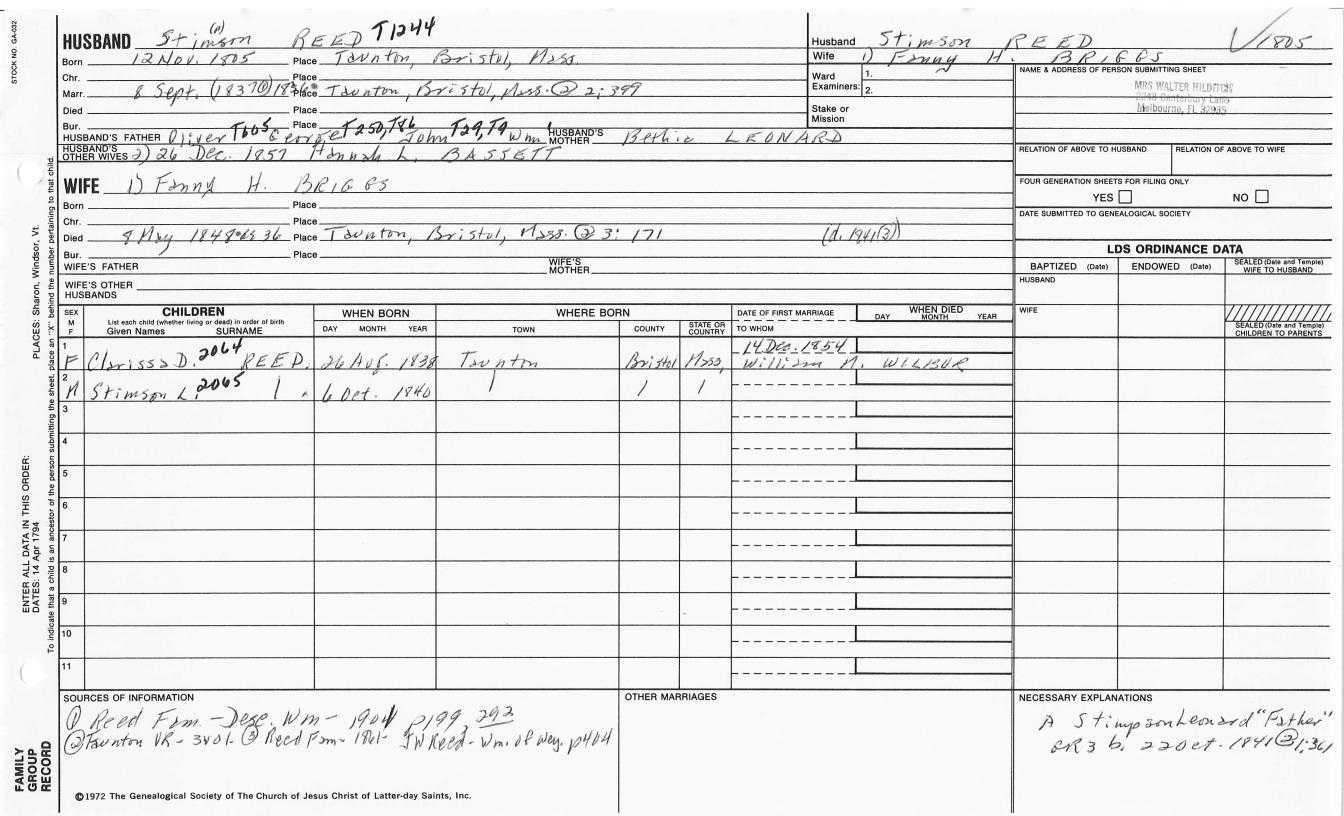 STOCK NO. GA-032
HUSBAND Stimson (p) REED T1244
Born 12 Nov. 1805 Place Taunton, Bristol, Mass.
Chr. Place
Marr. 8 Sept. (1837①) Place Taunton, Bristol, Mass. ② 2; 399
Died Place
Bur. Place
HUSBAND'S FATHER Oliver T605 George T250, T86 John T29, T9 Wm' HUSBAND'S MOTHER Bethia LEONARD
HUSBAND'S OTHER WIVES 2) 26 Dec. 1857 Hannah L. BASSETT
Husband Stimson REED √1805
Wife 1) Fanny H. BRIGGS
Ward Examiners: 1. 2.
Stake or Mission
NAME & ADDRESS OF PERSON SUBMITTING SHEET
MRS WALTER HILDITCH
Canterbury Lane
Melbourne, FL 32935
RELATION OF ABOVE TO HUSBAND RELATION OF ABOVE TO WIFE
FOUR GENERATION SHEETS FOR FILING ONLY
YES NO
DATE SUBMITTED TO GENEALOGICAL SOCIETY
WIFE 1) Fanny H. BRIGGS
Born Place
Chr. Place
Died 8 May 1848 36 Place Taunton, Bristol, Mass. ② 3: 171 (d. 1841③)
Bur. Place
WIFE'S FATHER WIFE'S MOTHER
WIFE'S OTHER HUSBANDS
LDS ORDINANCE DATA
BAPTIZED (Date) ENDOWED (Date) SEALED (Date and Temple) WIFE TO HUSBAND
HUSBAND
WIFE
SEALED (Date and Temple) CHILDREN TO PARENTS
SEX M F CHILDREN List each child (whether living or dead) in order of birth Given Names SURNAME
WHEN BORN DAY MONTH YEAR
WHERE BORN TOWN COUNTY STATE OR COUNTRY
DATE OF FIRST MARRIAGE TO WHOM
WHEN DIED DAY MONTH YEAR
1 14 Dec. 1854
F Clarissa D. 2064 REED 26 Aug. 1838 Taunton Bristol Mass. William M. WILBUR
2
M Stimson L. 2065 6 Oct. 1840
3
4
5
6
7
8
9
10
11
SOURCES OF INFORMATION
① Reed Fam. - Desc. Wm - 1901 p199, 292
② Taunton VR - 3 vol. ③ Reed Fam - 1861 - JW Reed - Wm. of Wey. p404
OTHER MARRIAGES
NECESSARY EXPLANATIONS
A Stimpson Leonard "Father"
GR3 b. 22 Oct. 1841 ② 1; 361
©1972 The Genealogical Society of The Church of Jesus Christ of Latter-day Saints, Inc.
ENTER ALL DATA IN THIS ORDER:
DATES: 14 Apr 1794 PLACES: Sharon, Windsor, Vt.
To indicate that a child is an ancestor of the person submitting the sheet, place an "X" behind the number pertaining to that child.
FAMILY GROUP RECORD